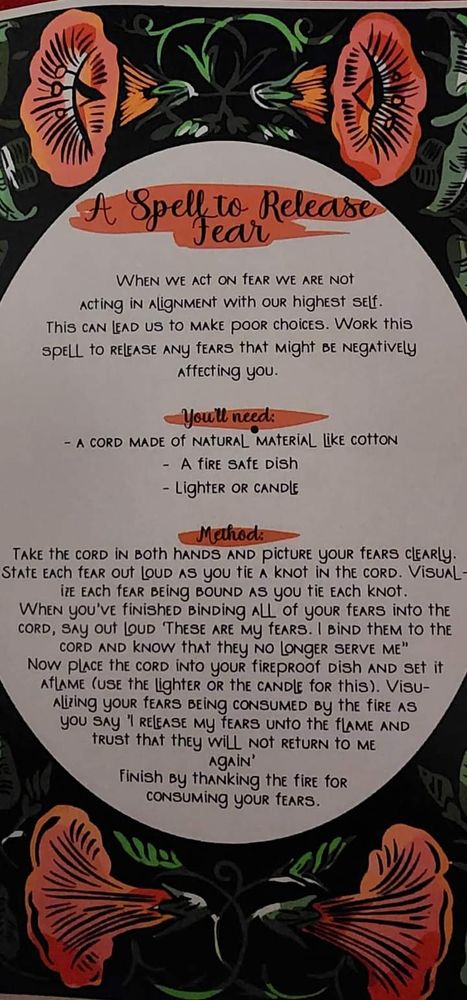 A Spell to Release
Fear
When we act on fear we are not
acting in alignment with our highest self.
This can lead us to make poor choices. Work this
spell to release any fears that might be negatively
affecting you.
You'll need:
- A cord made of natural material like cotton
- A fire safe dish
- Lighter or candle
Method:
Take the cord in both hands and picture your fears clearly.
State each fear out loud as you tie a knot in the cord. Visual-
ize each fear being bound as you tie each knot.
When you've finished binding all of your fears into the
cord, say out loud 'These are my fears. I bind them to the
cord and know that they no longer serve me"
Now place the cord into your fireproof dish and set it
aflame (use the lighter or the candle for this). Visu-
alizing your fears being consumed by the fire as
you say 'I release my fears unto the flame and
trust that they will not return to me
again'
Finish by thanking the fire for
consuming your fears.